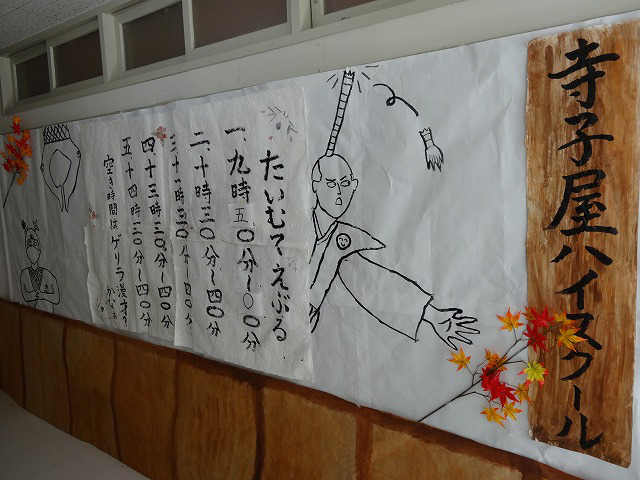 寺子屋ハイスクール
たいむてえぶる
一、九時五〇分〜〇〇分
二、十時三〇分〜四〇分
三、十時三〇〜四〇分
四、十三時三〇分〜四〇分
五、十四時三〇分〜四〇分
空き時間はゲリラ漫才?
かな〜